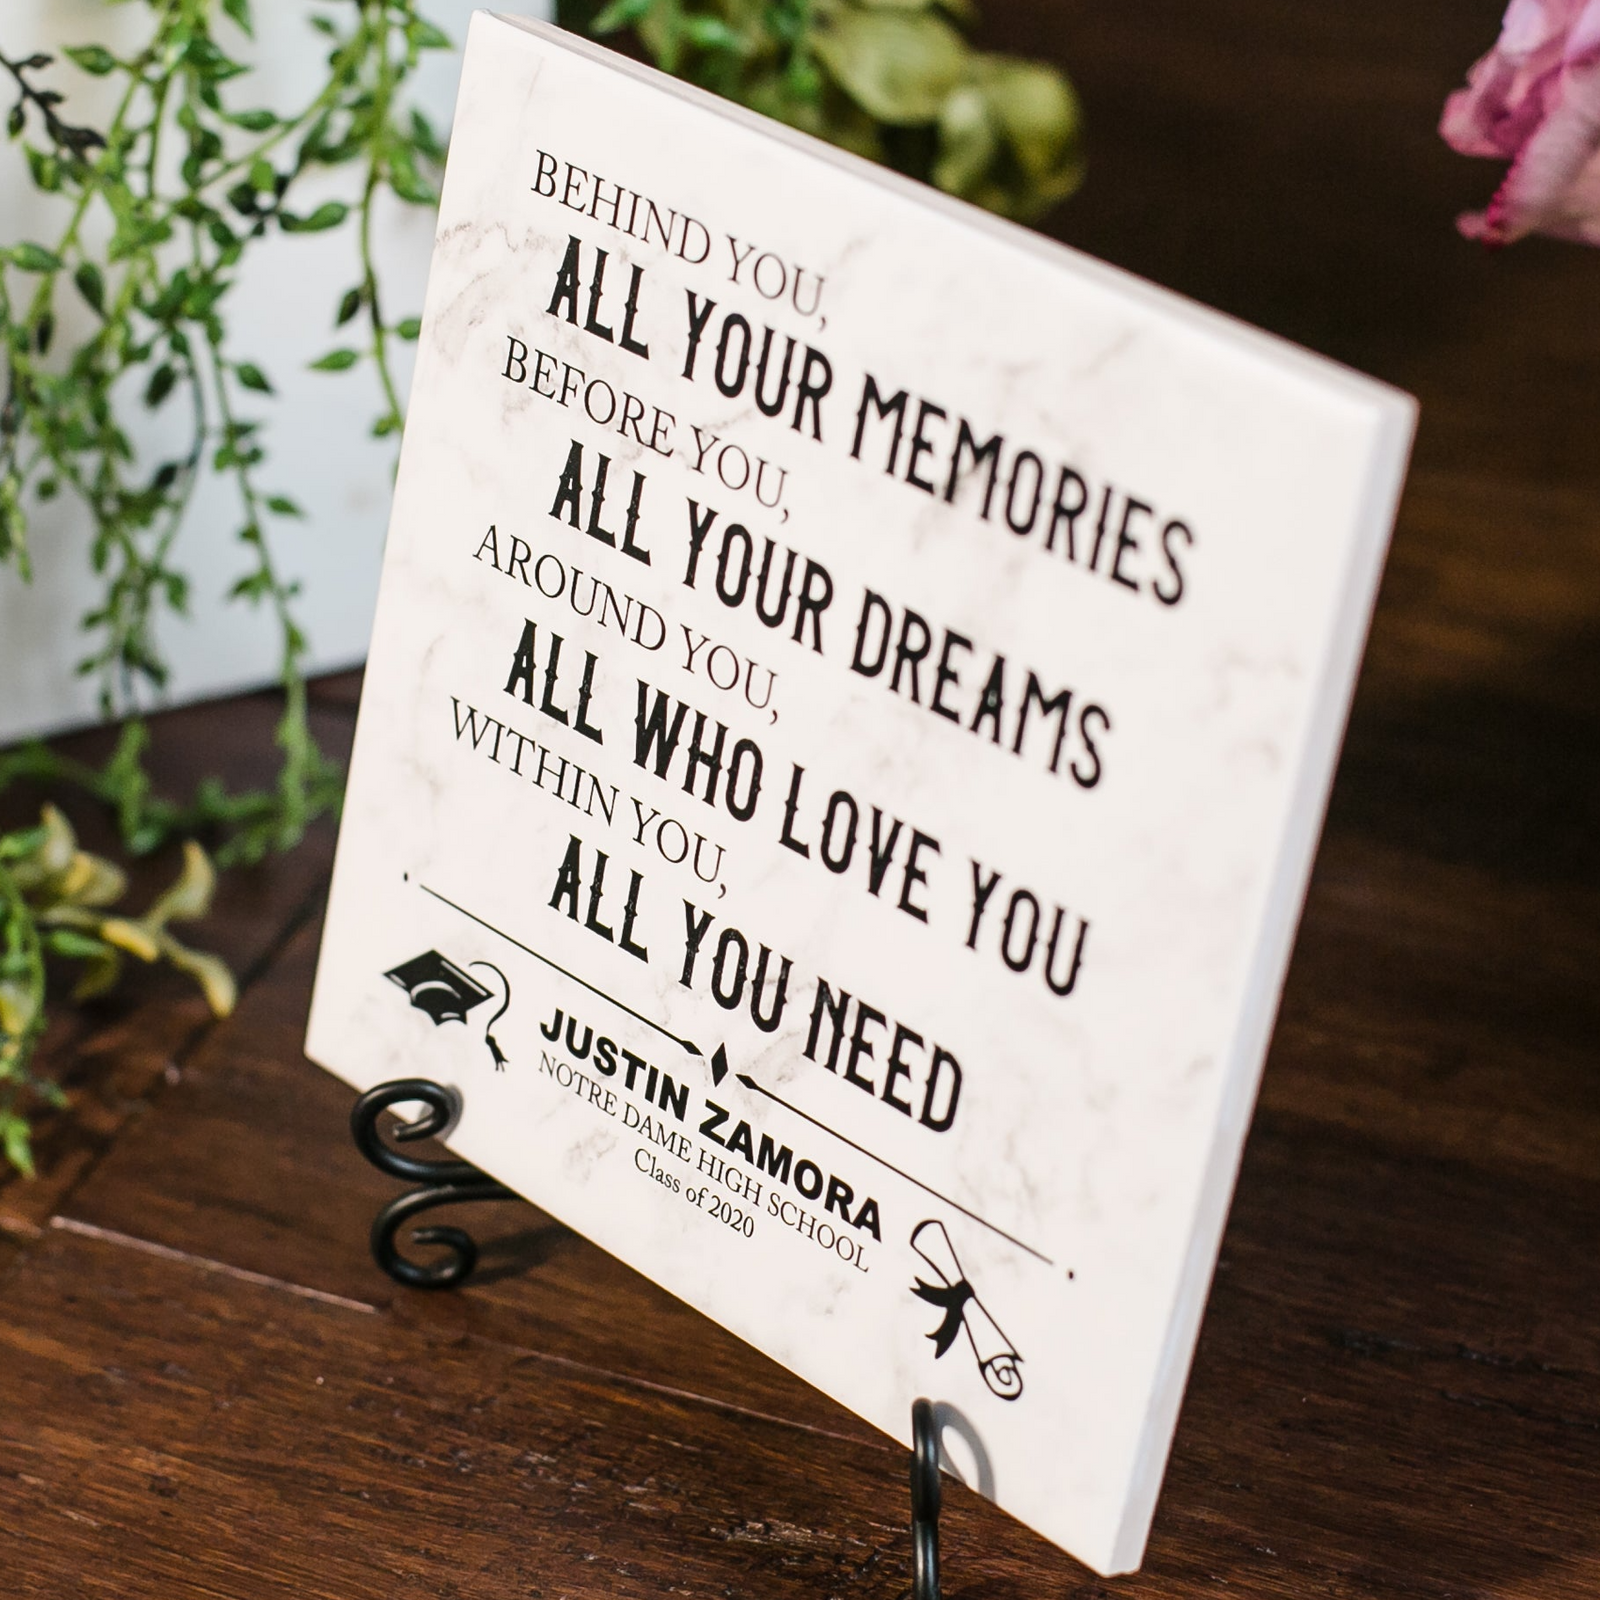 BEHIND YOU,
ALL YOUR MEMORIES
BEFORE YOU,
ALL YOUR DREAMS
AROUND YOU,
ALL WHO LOVE YOU
WITHIN YOU,
ALL YOU NEED
JUSTIN ZAMORA
NOTRE DAME HIGH SCHOOL
Class of 2020